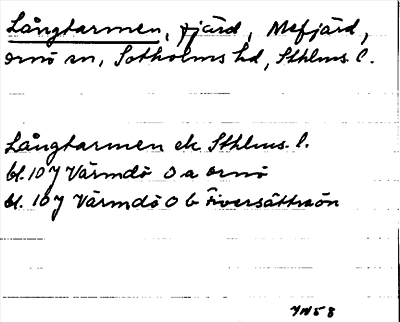 Långtarmen, fjärd, Mefjärd,
ornö sn, Sotholms hd, Sthlms l.
Långtarmen ek Sthlms l.
bl. 10 J Värmdö 0 a ornö
bl. 10 J Värmdö 0 b Fiversättraön
JN58